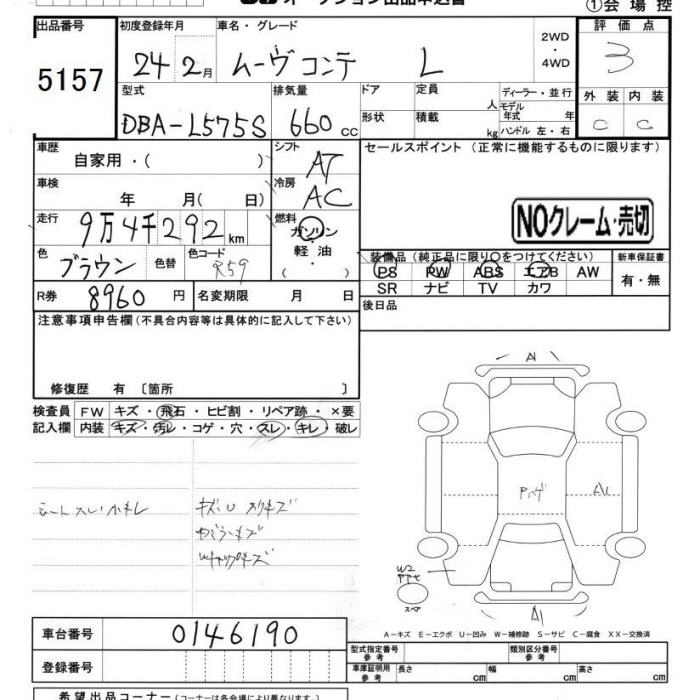 ①会場控
出品番号 初度登録年月 車名・グレード 2WD・4WD 評価点
5157 24年2月 ムーヴコンテ L 3
型式 排気量 ドア 定員 人 ディーラー・並行 外装 内装
DBA-L575S 660cc 形状 積載 kg モデル年式 年 ハンドル 左・右 C C
車歴 自家用・( ) シフト AT セールスポイント(正常に機能するものに限ります)
車検 年 月( 日) 冷房 AC
走行 9万4千292km 燃料 ガソリン・軽油・( ) NOクレーム・売切
色 ブラウン 色替 色コード R59 装備品(純正品に限り○をつけてください) 新車保証書
PS PW ABS エアB AW 有・無
SR ナビ TV カワ
R券 8960円 名変期限 月 日 後日品
注意事項申告欄(不具合内容等は具体的に記入して下さい)
修復歴 有〔箇所 〕
検査員 FW キズ・飛石・ヒビ割・リペア跡・×要
記入欄 内装 キズ・汚レ・コゲ・穴・スレ・キレ・破レ
A1
シートスレ小キレ
A1
W2
スペア
A1
A-キズ E-エクボ U-凹み W-補修跡 S-サビ C-腐食 XX-交換済
車台番号 0146190 型式指定番号 参考 類別区分番号 参考
登録番号 車庫証明用 参考 長さ cm 幅 cm 高さ cm
希望出品コーナー(コーナーは各会場により異なります。)